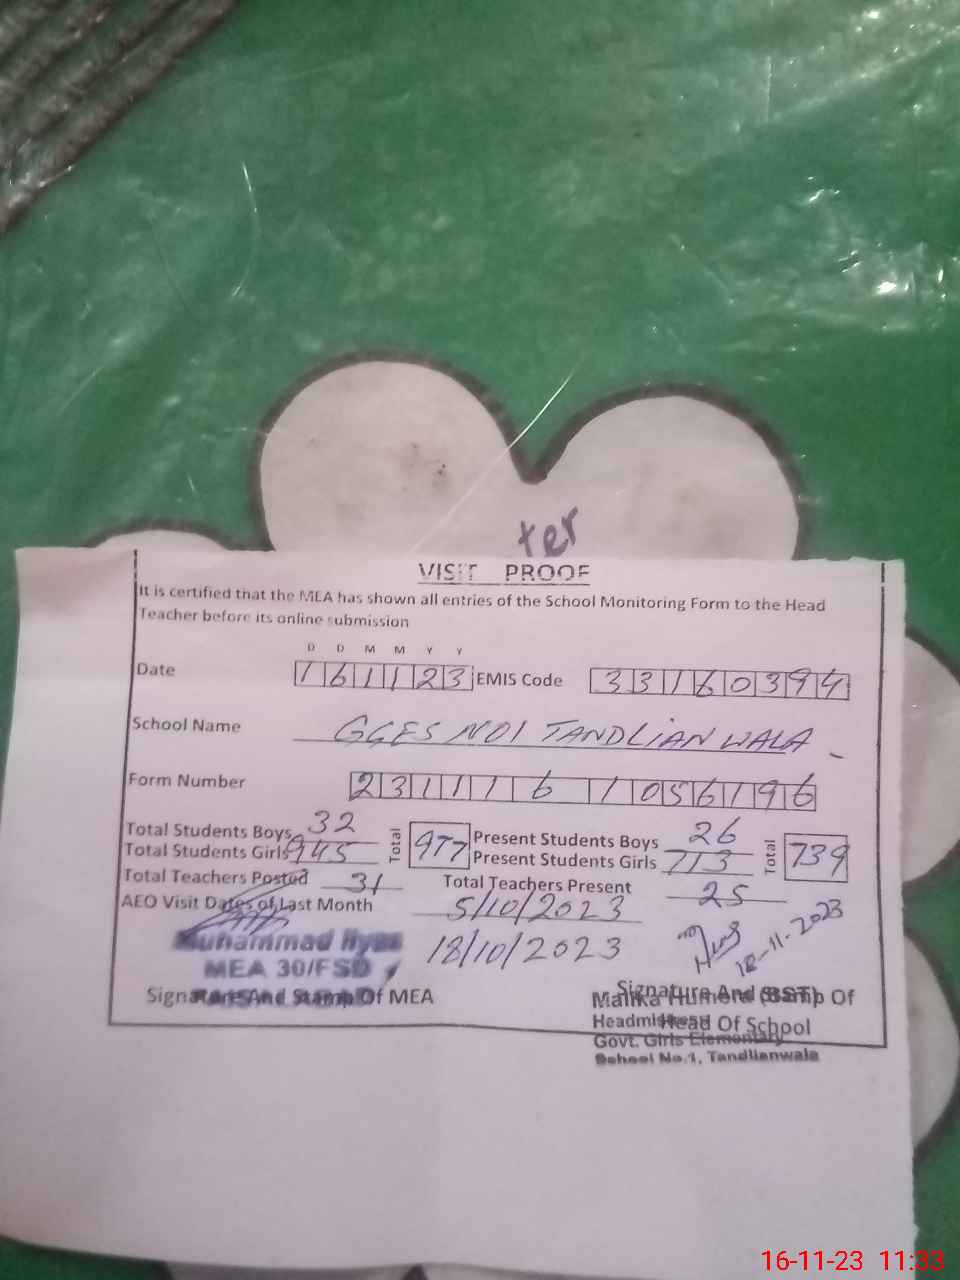 ter
VISIT PROOF
It is certified that the MEA has shown all entries of the School Monitoring Form to the Head
Teacher before its online submission
D D M M Y Y
Date 161123 EMIS Code 33160394
School Name GGES NO1 TANDLIANWALA
Form Number 231116 1056196
Total Students Boys 32 Total 977 Present Students Boys 26 Total 739
Total Students Girls 945 Present Students Girls 713
Total Teachers Posted 31 Total Teachers Present 25
AEO Visit Dates of Last Month 5/10/2023
18/10/2023
Muhammad Ilyas
MEA 30/FSD
Signature And Stamp Of MEA
-11-2023
Signature And Stamp Of
Head Of School
Malika Humera (SST)
Headmistress
Govt. Girls Elementary
School No.1, Tandlianwala
16-11-23 11:33